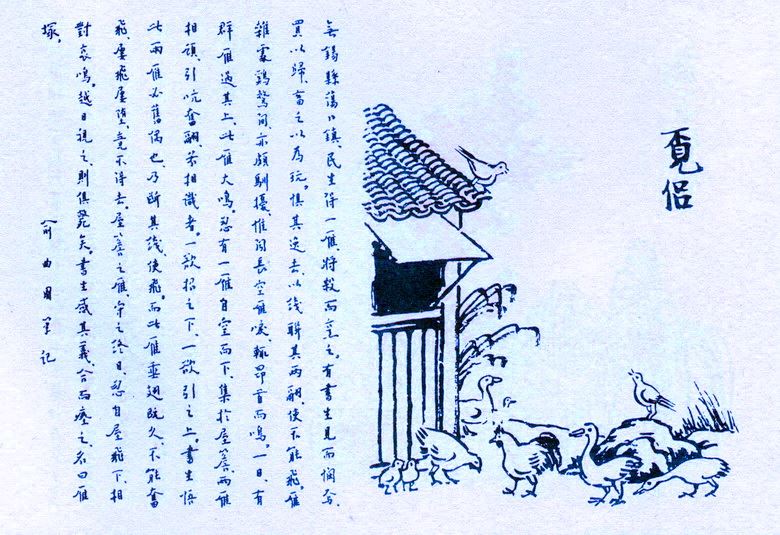 覓侶
無錫縣蕩口鎮、民生得一雁、將殺而烹之。有書生見而憫焉、
買以歸、畜之以為玩。懼其逸去、以綫聯其兩翮、使不能飛。雁
雜處鷄鶩間、亦頗馴擾、惟聞長空雁唳、輒昂首而鳴。一日、有
群雁過其上、此雁大鳴。忽有一雁自空而下、集於屋簷、兩雁
相顧、引吭奮翮、若相識者。一欲招之下、一欲引之上。書生悟
此兩雁必舊偶也、乃断其綫、使飛。而此雁垂翅既久、不能奮
飛、屢飛屢堕、竟不得去。屋簷之雁、守之終日、忽自屋飛下、相
對哀鳴。越日視之、則俱斃矣。書生感其義、合而瘞之、名曰雁
塚。
俞曲園筆記